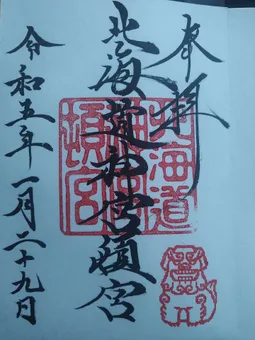 奉拝
北海道神宮頓宮
令和五年一月二十九日
北海道神宮頓宮